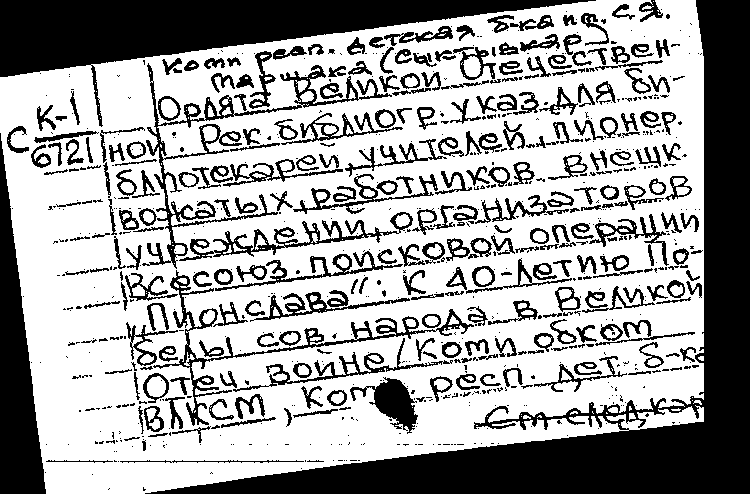 Коми респ. детская б-ка им. С.Я.
Маршака (Сыктывкар)
Орлята Великой Отечествен-
С К-1
6721
ной: Рек. библиогр. указ. для би-
блиотекарей, учителей, пионер.
вожатых, работников внешк.
учреждений, организаторов
Всесоюз. поисковой операции
„Пион. слава“: К 40-летию По-
беды сов. народа в Великой
Отеч. войне / Коми обком
ВЛКСМ, Коми респ. дет. б-ка
См. след. кар